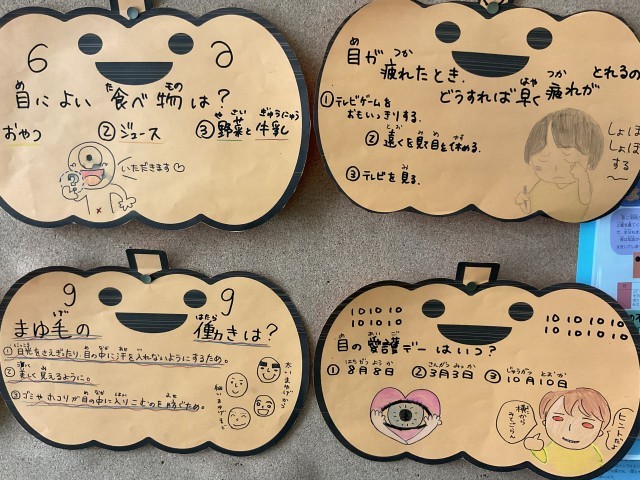 6 6
目によい食べ物は？
おやつ ②ジュース ③野菜と牛乳
いただきます♡
目が疲れたとき、
どうすれば早く疲れがとれるの
①テレビゲームを
おもいっきりする。
②遠くを見て目を休める。
③テレビを見る。
しょぼ
しょぼ
する〜
9 9
まゆ毛の働きは？
①日光をさえぎたり、目の中に汗を入れないようにするため。
②美しく見えるように。
③ゴミやホコリが目の中に入りこむのを防ぐため。
太いまゆげから
細いまゆげまで。
10 10 10
10 10 10
10 10 10 10
10 10 10 10
目の愛護デーはいつ？
①8月8日 ②3月3日 ③10月10日
横から
みてごらん
ヒントだよ